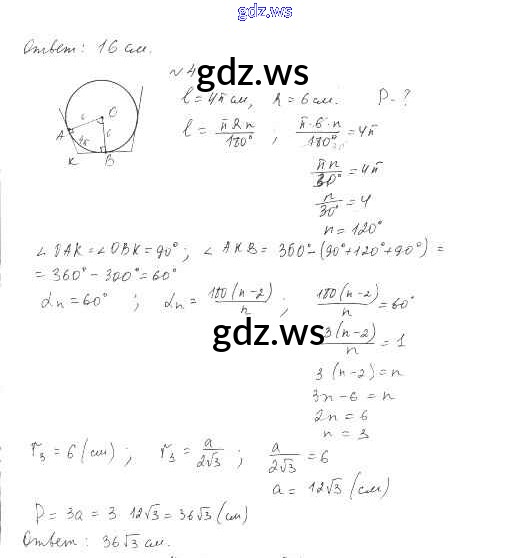 gdz.ws
Ответ: 16 см.
№4
gdz.ws
l = 4π см, R = 6 см. P - ?
l = πRn/180° ; π·6·n/180° = 4π
πn/30° = 4π
n/30° = 4
n = 120°
O
6
6
A
4π
K
B
∠OAK = ∠OBK = 90° ; ∠AKB = 360° - (90° + 120° + 90°) =
= 360° - 300° = 60°
αn = 60° ; αn = 180(n-2)/n ; 180(n-2)/n = 60°
gdz.ws
3(n-2)/n = 1
3(n-2) = n
3n - 6 = n
2n = 6
n = 3
r₃ = 6 (см) ; r₃ = a/2√3 ; a/2√3 = 6
a = 12√3 (см)
P = 3a = 3·12√3 = 36√3 (см)
Ответ: 36√3 см.